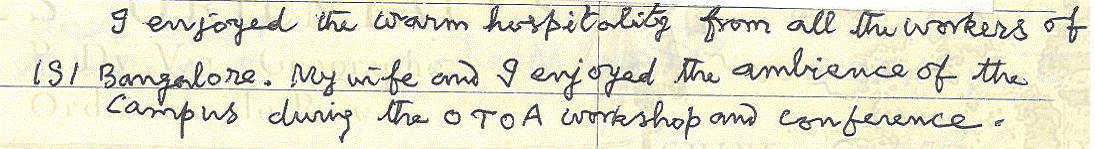 I enjoyed the warm hospitality from all the workers of
ISI Bangalore. My wife and I enjoyed the ambience of the
Campus during the OTOA workshop and conference.